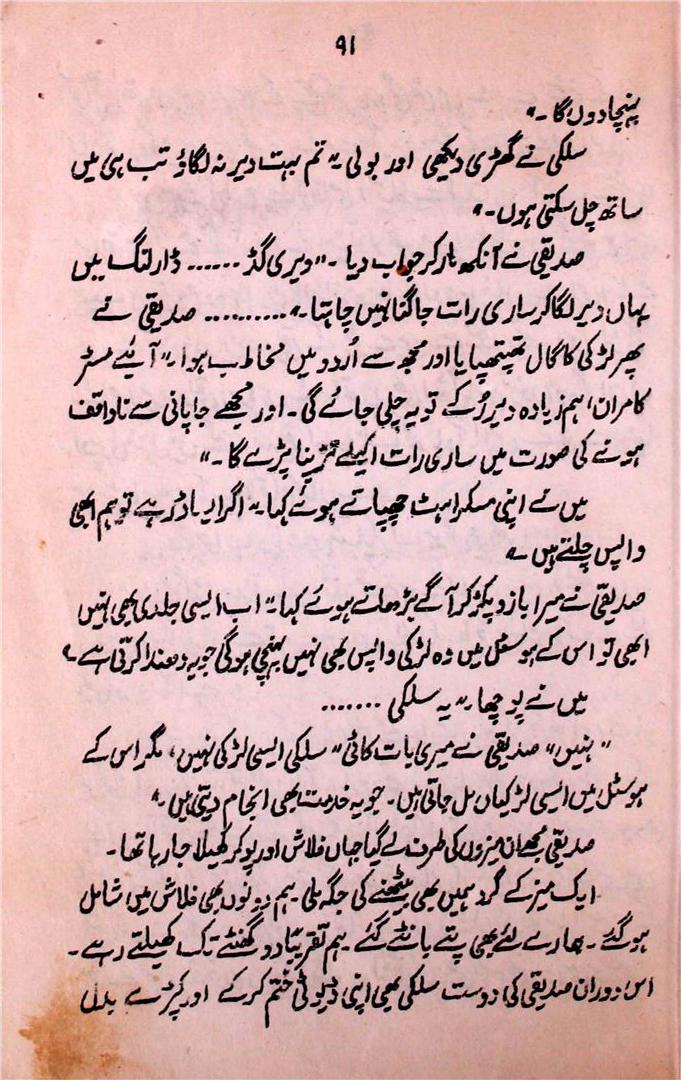 ۹۱
پہنچادوں گا۔"
سلکی نے گھڑی دیکھی اور بولی۔" تم بہت دیر نہ لگاؤ تب ہی میں
ساتھ چل سکتی ہوں۔"
صدیقی نے آنکھ مار کر جواب دیا۔" ویری گڈ ...... ڈارلنگ میں
یہاں دیر لگا کر ساری رات جاگنا نہیں چاہتا۔" .......... صدیقی نے
پھر لڑکی کا گال تھپتھپایا اور مجھ سے اُردو میں مخاطب ہوا۔" آیئے مسٹر
کامران! ہم زیادہ دیر رُکے تو یہ چلی جائے گی۔ اور مجھے جاپانی سے ناواقف
ہونے کی صورت میں ساری رات اکیلے تڑپنا پڑے گا۔"
میں نے اپنی مسکراہٹ چھپاتے ہوئے کہا۔" اگر ایسا ڈر ہے تو ہم ابھی
واپس چلتے ہیں۔"
صدیقی نے میرا بازو پکڑ کر آگے بڑھاتے ہوئے کہا۔" اب ایسی جلدی بھی نہیں
ابھی تو اس کے ہوسٹل میں وہ لڑکی واپس بھی نہیں پہنچی ہوگی جو یہ دھندا کرتی ہے۔"
میں نے پوچھا۔" یہ سلکی .......
" نہیں" صدیقی نے میری بات کاٹی" سلکی ایسی لڑکی نہیں، مگر اس کے
ہوسٹل میں ایسی لڑکیاں مل جاتی ہیں۔ جو یہ خدمت بھی انجام دیتی ہیں۔"
صدیقی مجھے ان میزوں کی طرف لے گیا جہاں فلاش اور پوکر کھیلا جا رہا تھا۔
ایک میز کے گرد ہمیں بھی بیٹھنے کی جگہ ملی۔ ہم دونوں بھی فلاش میں شامل
ہو گئے۔ ہمارے لئے بھی پتے بانٹے گئے۔ ہم تقریباً دو گھنٹے تک کھیلتے رہے۔
اس دوران صدیقی کی دوست سلکی بھی اپنی ڈیوٹی ختم کر کے اور کپڑے بدل